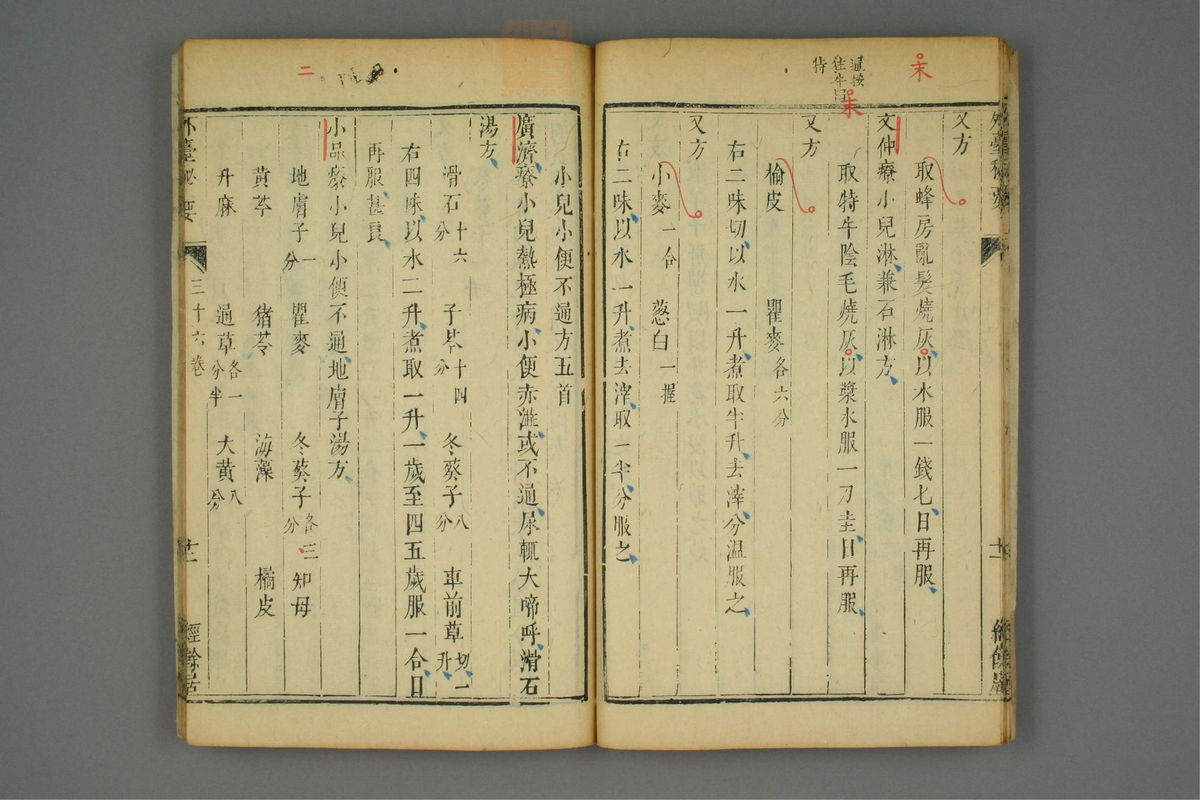 末
末
通按
往牛日
特
外臺秘要
十一
經餘居
又方
取蜂房亂髮燒灰以水服一錢七日再服
文仲療小兒淋兼石淋方
取特牛陰毛燒灰以漿水服一刀圭日再服
又方
榆皮 瞿麥各六分
右二味切以水一升煮取半升去滓分温服之
又方
小麥一合 葱白一握
右二味以水一升煮去滓取一半分服之
小兒小便不通方五首
廣濟療小兒熱極病小便赤澁或不通尿輒大啼呼滑石
湯方
滑石十六分 子芩十四分 冬葵子八分 車前草切一升
右四味以水二升煮取一升一歲至四五歲服一合日
再服甚良
小品療小兒小便不通地膚子湯方
地膚子一分 瞿麥 冬葵子各三分 知母
黃芩 猪苓 海藻 橘皮
升麻 通草各一分半 大黃八分
外臺秘要
三十六卷
十一
經餘居
二